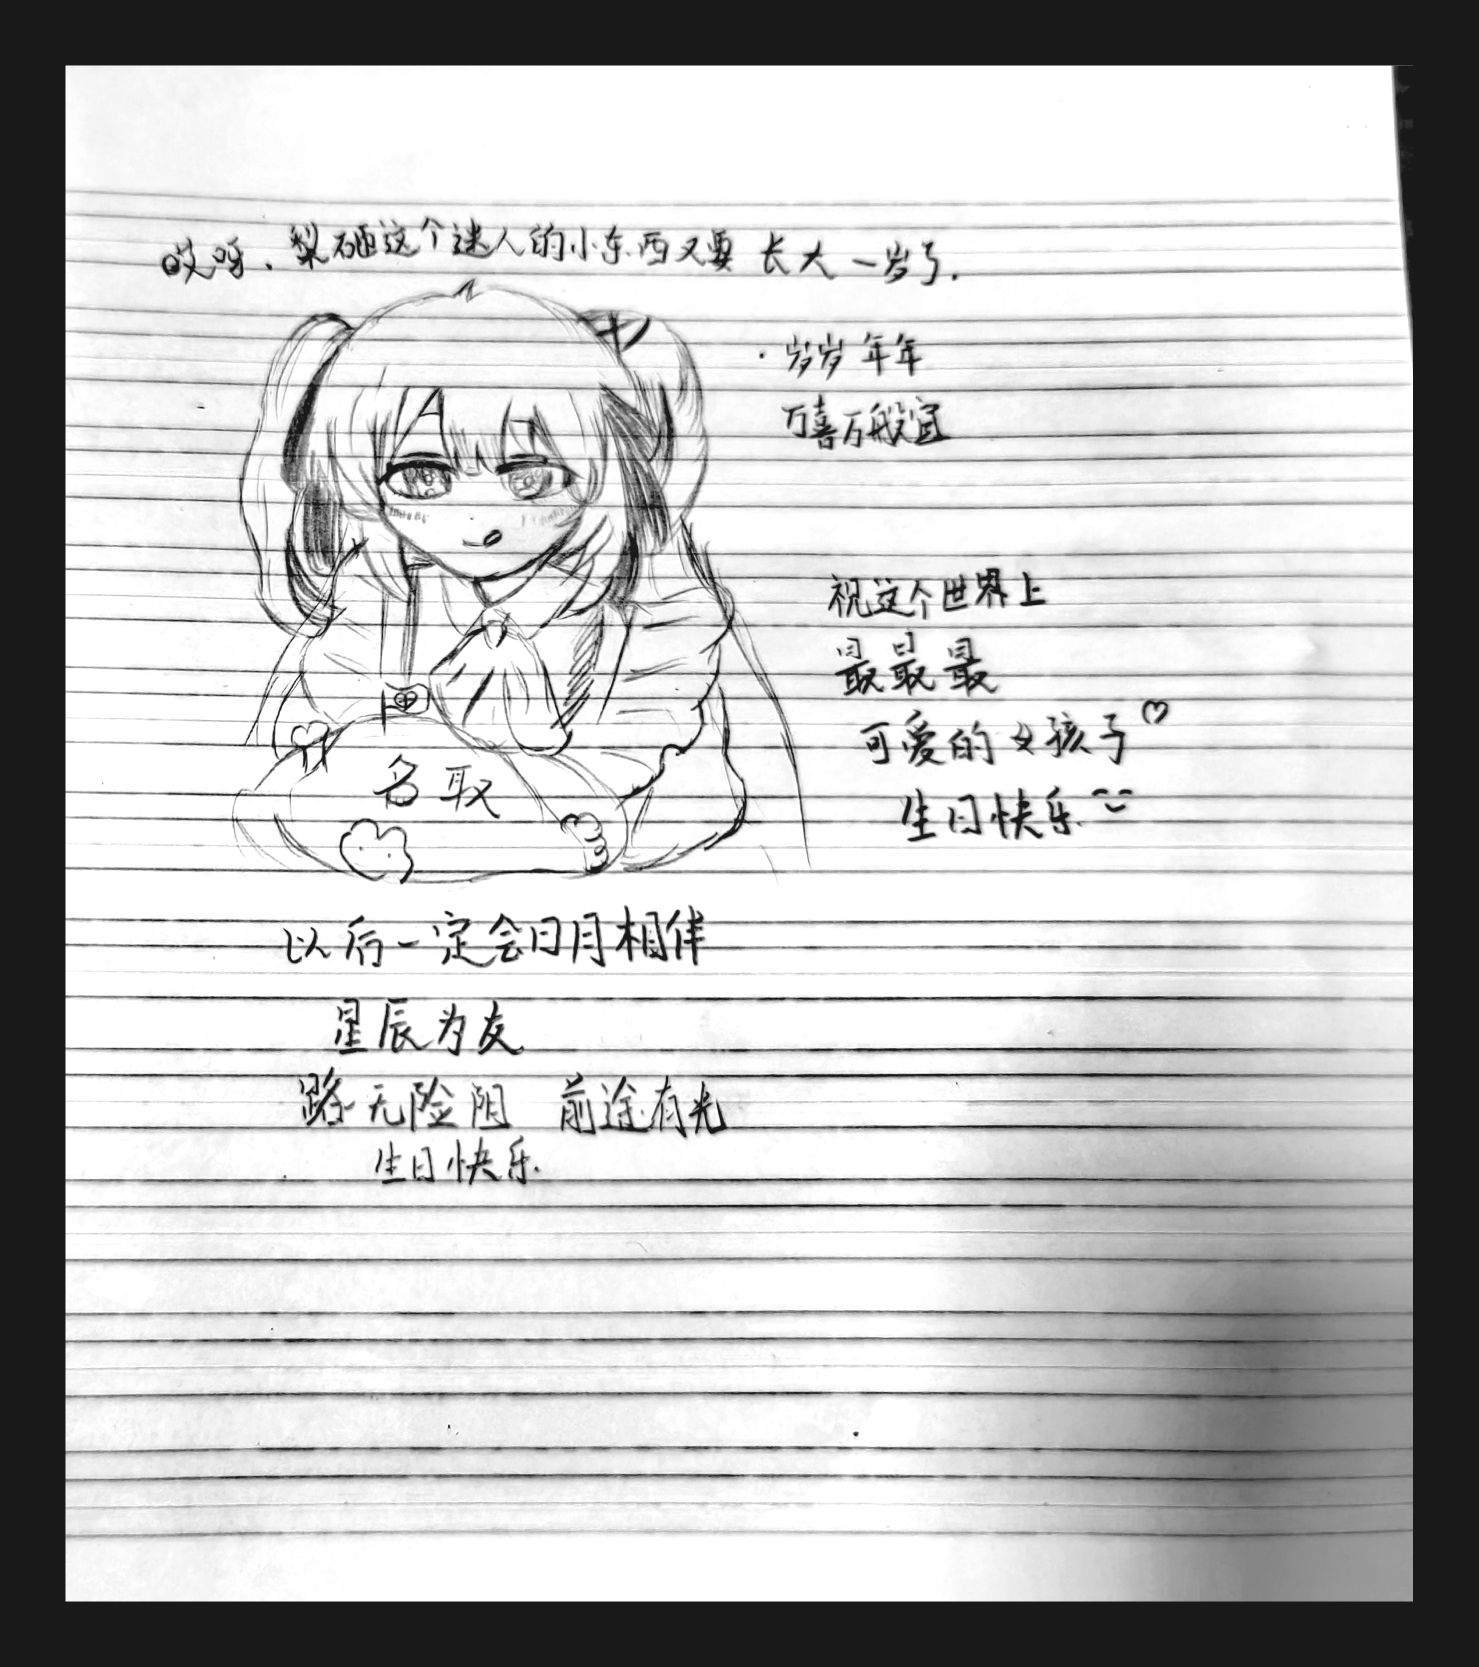 哎呀、梨硒这个迷人的小东西又要 长大一岁了.
岁岁年年
万喜万般宜
祝这个世界上
最最最
可爱的女孩子
生日快乐
名取
以后一定会日月相伴
星辰为友
路无险阻 前途有光
生日快乐.